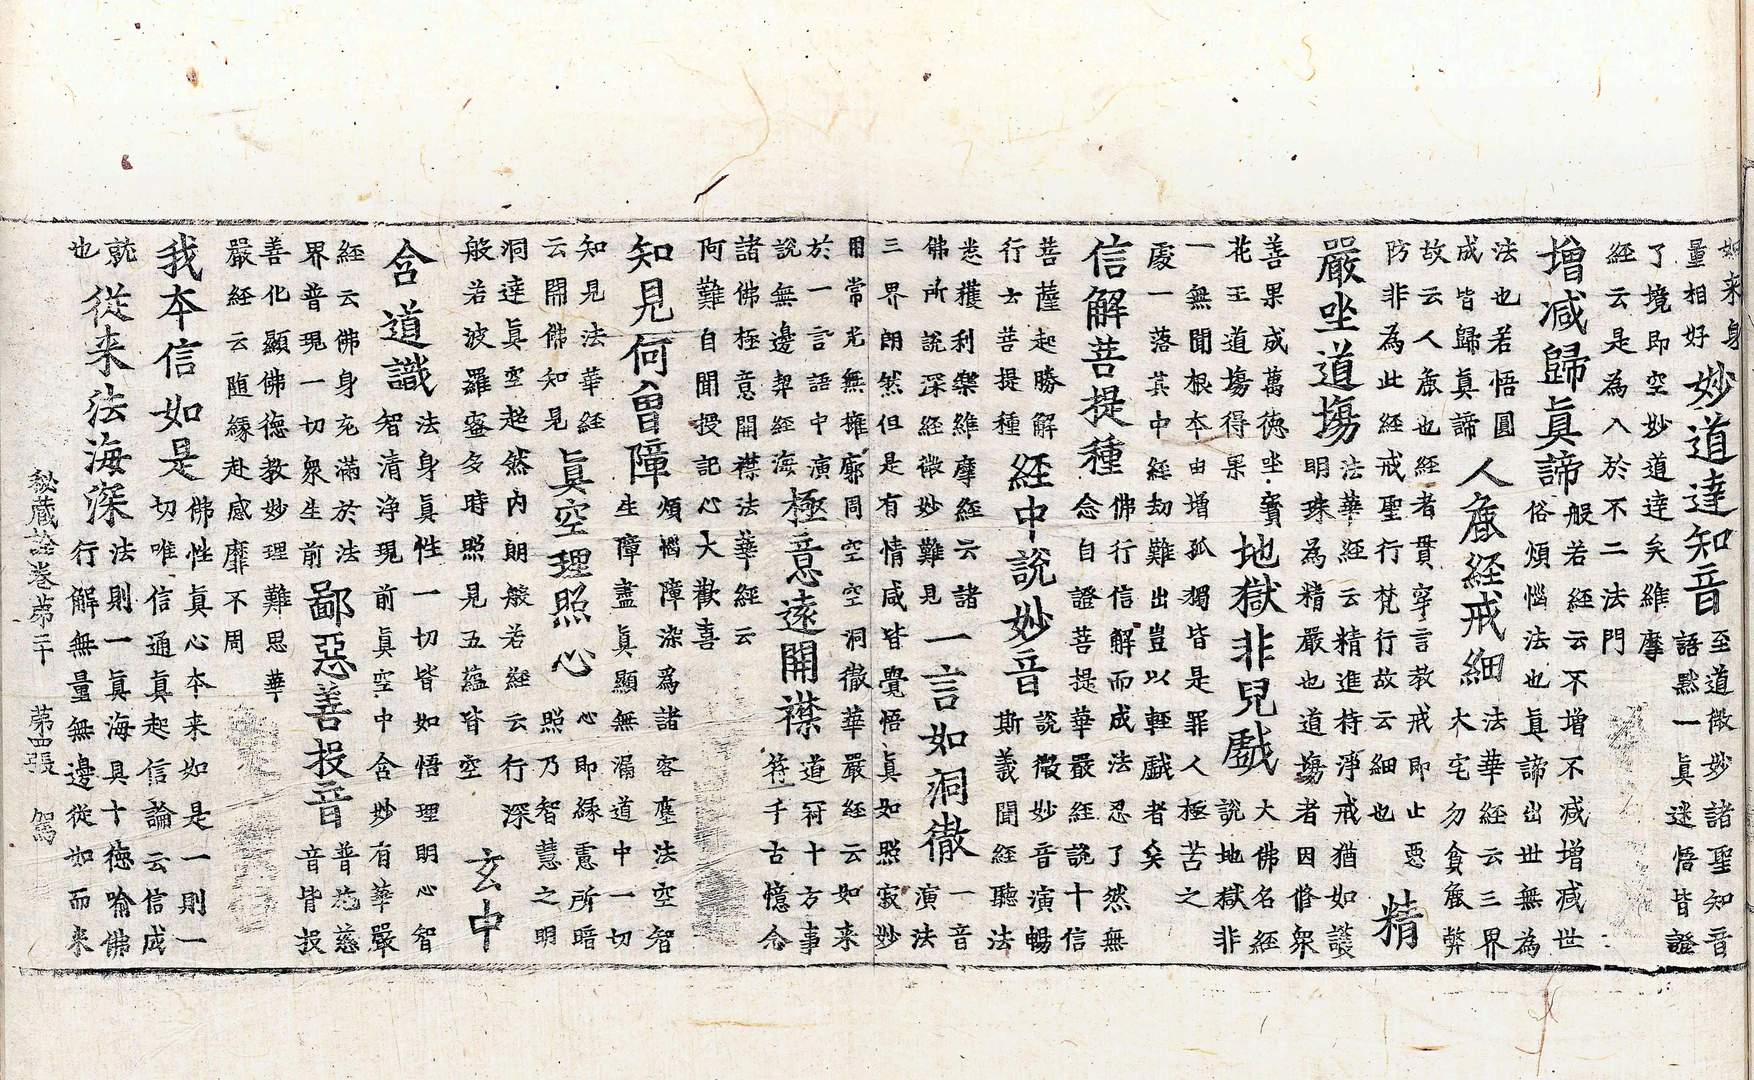 如来身
量相好
妙道達知音
至道微妙諸聖知音
語黙一真迷悟皆證
了境即空妙道達矣維摩
經云是為入於不二法門
增减歸眞諦
般若經云不增不减增减世
俗煩惱法也真諦出世無為
法也若悟圓
成皆歸真諦
人麁經戒細
法華經云三界
大宅勿貪麁弊
故云人麁也經者貫穿言教戒即止惡
防非為此經戒聖行梵行故云細也
精
嚴坐道塲
法華經云精進持淨戒猶如護
明珠為精嚴也道塲者因脩衆
善果成萬徳坐寳
花王道塲得果
地獄非兒戲
大佛名經
說地獄非
一無聞根本由增孤獨皆是罪人極苦之
處一落其中經劫難出豈以輕戲者矣
信解菩提種
佛行信解而成法忍了然無
念自證菩提華嚴經説十信
菩薩起勝解
行士菩提種
經中說妙音
説微妙音演暢
斯義聞經聽法
悉獲利樂維摩經云諸
佛所說深經微妙難見
一言如洞徹
一音
演法
三界朗然但是有情咸皆覺悟真如照寂妙
用常光無擁廓同空空洞徹華嚴經云如来
於一言語中演
說無邊契經海
極意遠開襟
道符十方事
符千古憶念
諸佛極意開襟法華經云
阿難自聞授記心大歡喜
知見何曾障
煩惱障染為諸客塵法空智
生障盡真顯無漏道中一切
知見法華經
云開佛知見
眞空理照心
心即緣慮所暗
照乃智慧之明
洞達真空超然内朗般若經云行深
般若波羅蜜多時照見五藴皆空
玄中
含道識
法身真性一切皆如悟理明心智
智清净現前真空中含妙有華嚴
經云佛身充滿於法
界普現一切衆生前
鄙惡善投音
普慈
音皆投
善化顯佛徳教妙理難思華
嚴經云随緣赴感靡不周
我本信如是
佛性真心本来如是一則一
切唯信通真起信論云信成
就
也
從来法海深
法則一真海具十徳喻佛
行解無量無邊從如而来
秘藏詮卷第二十 第四張 駕